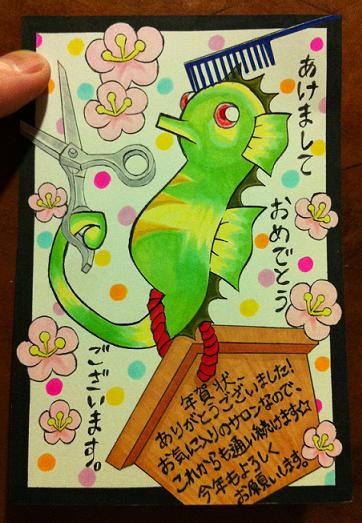 あけまして
おめでとう
ございます。
年賀状
ありがとうございました!
お気に入りのサロンなので、
これからも通い続けます☆
今年もよろしく
お願いします。